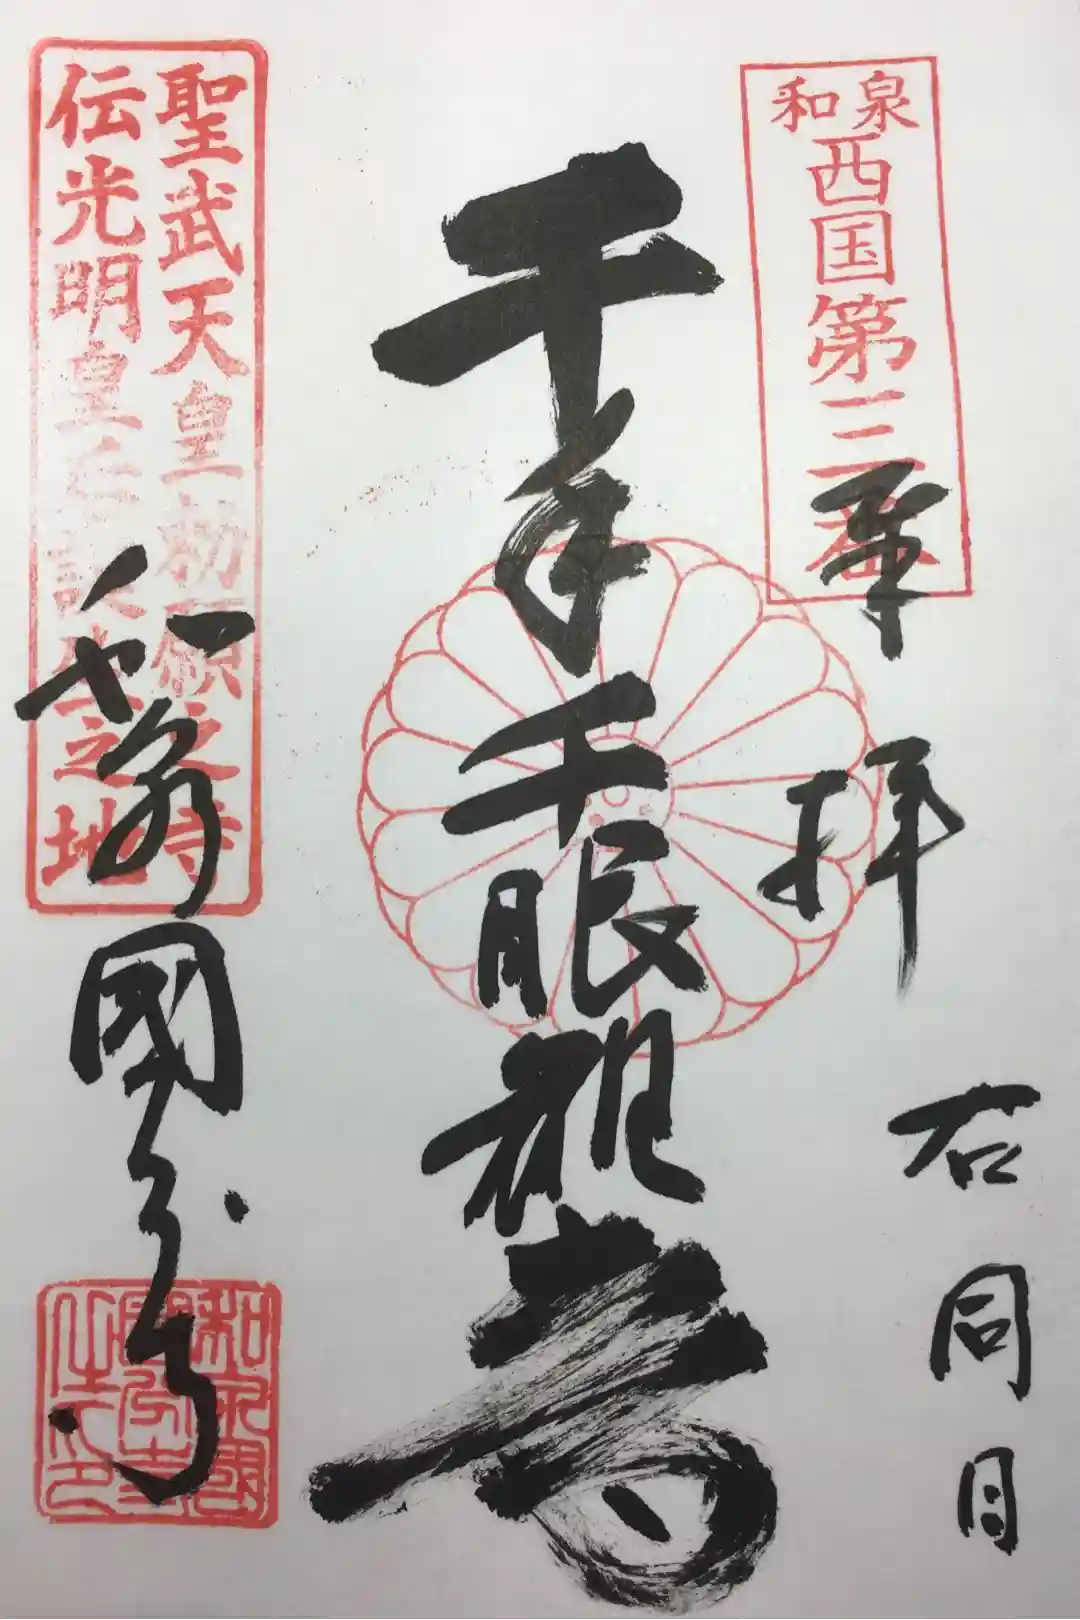 和泉
西国第三番
奉拝
右同日
千手千眼観音
聖武天皇勅願之寺
伝光明皇后誕生之地
和泉國分寺